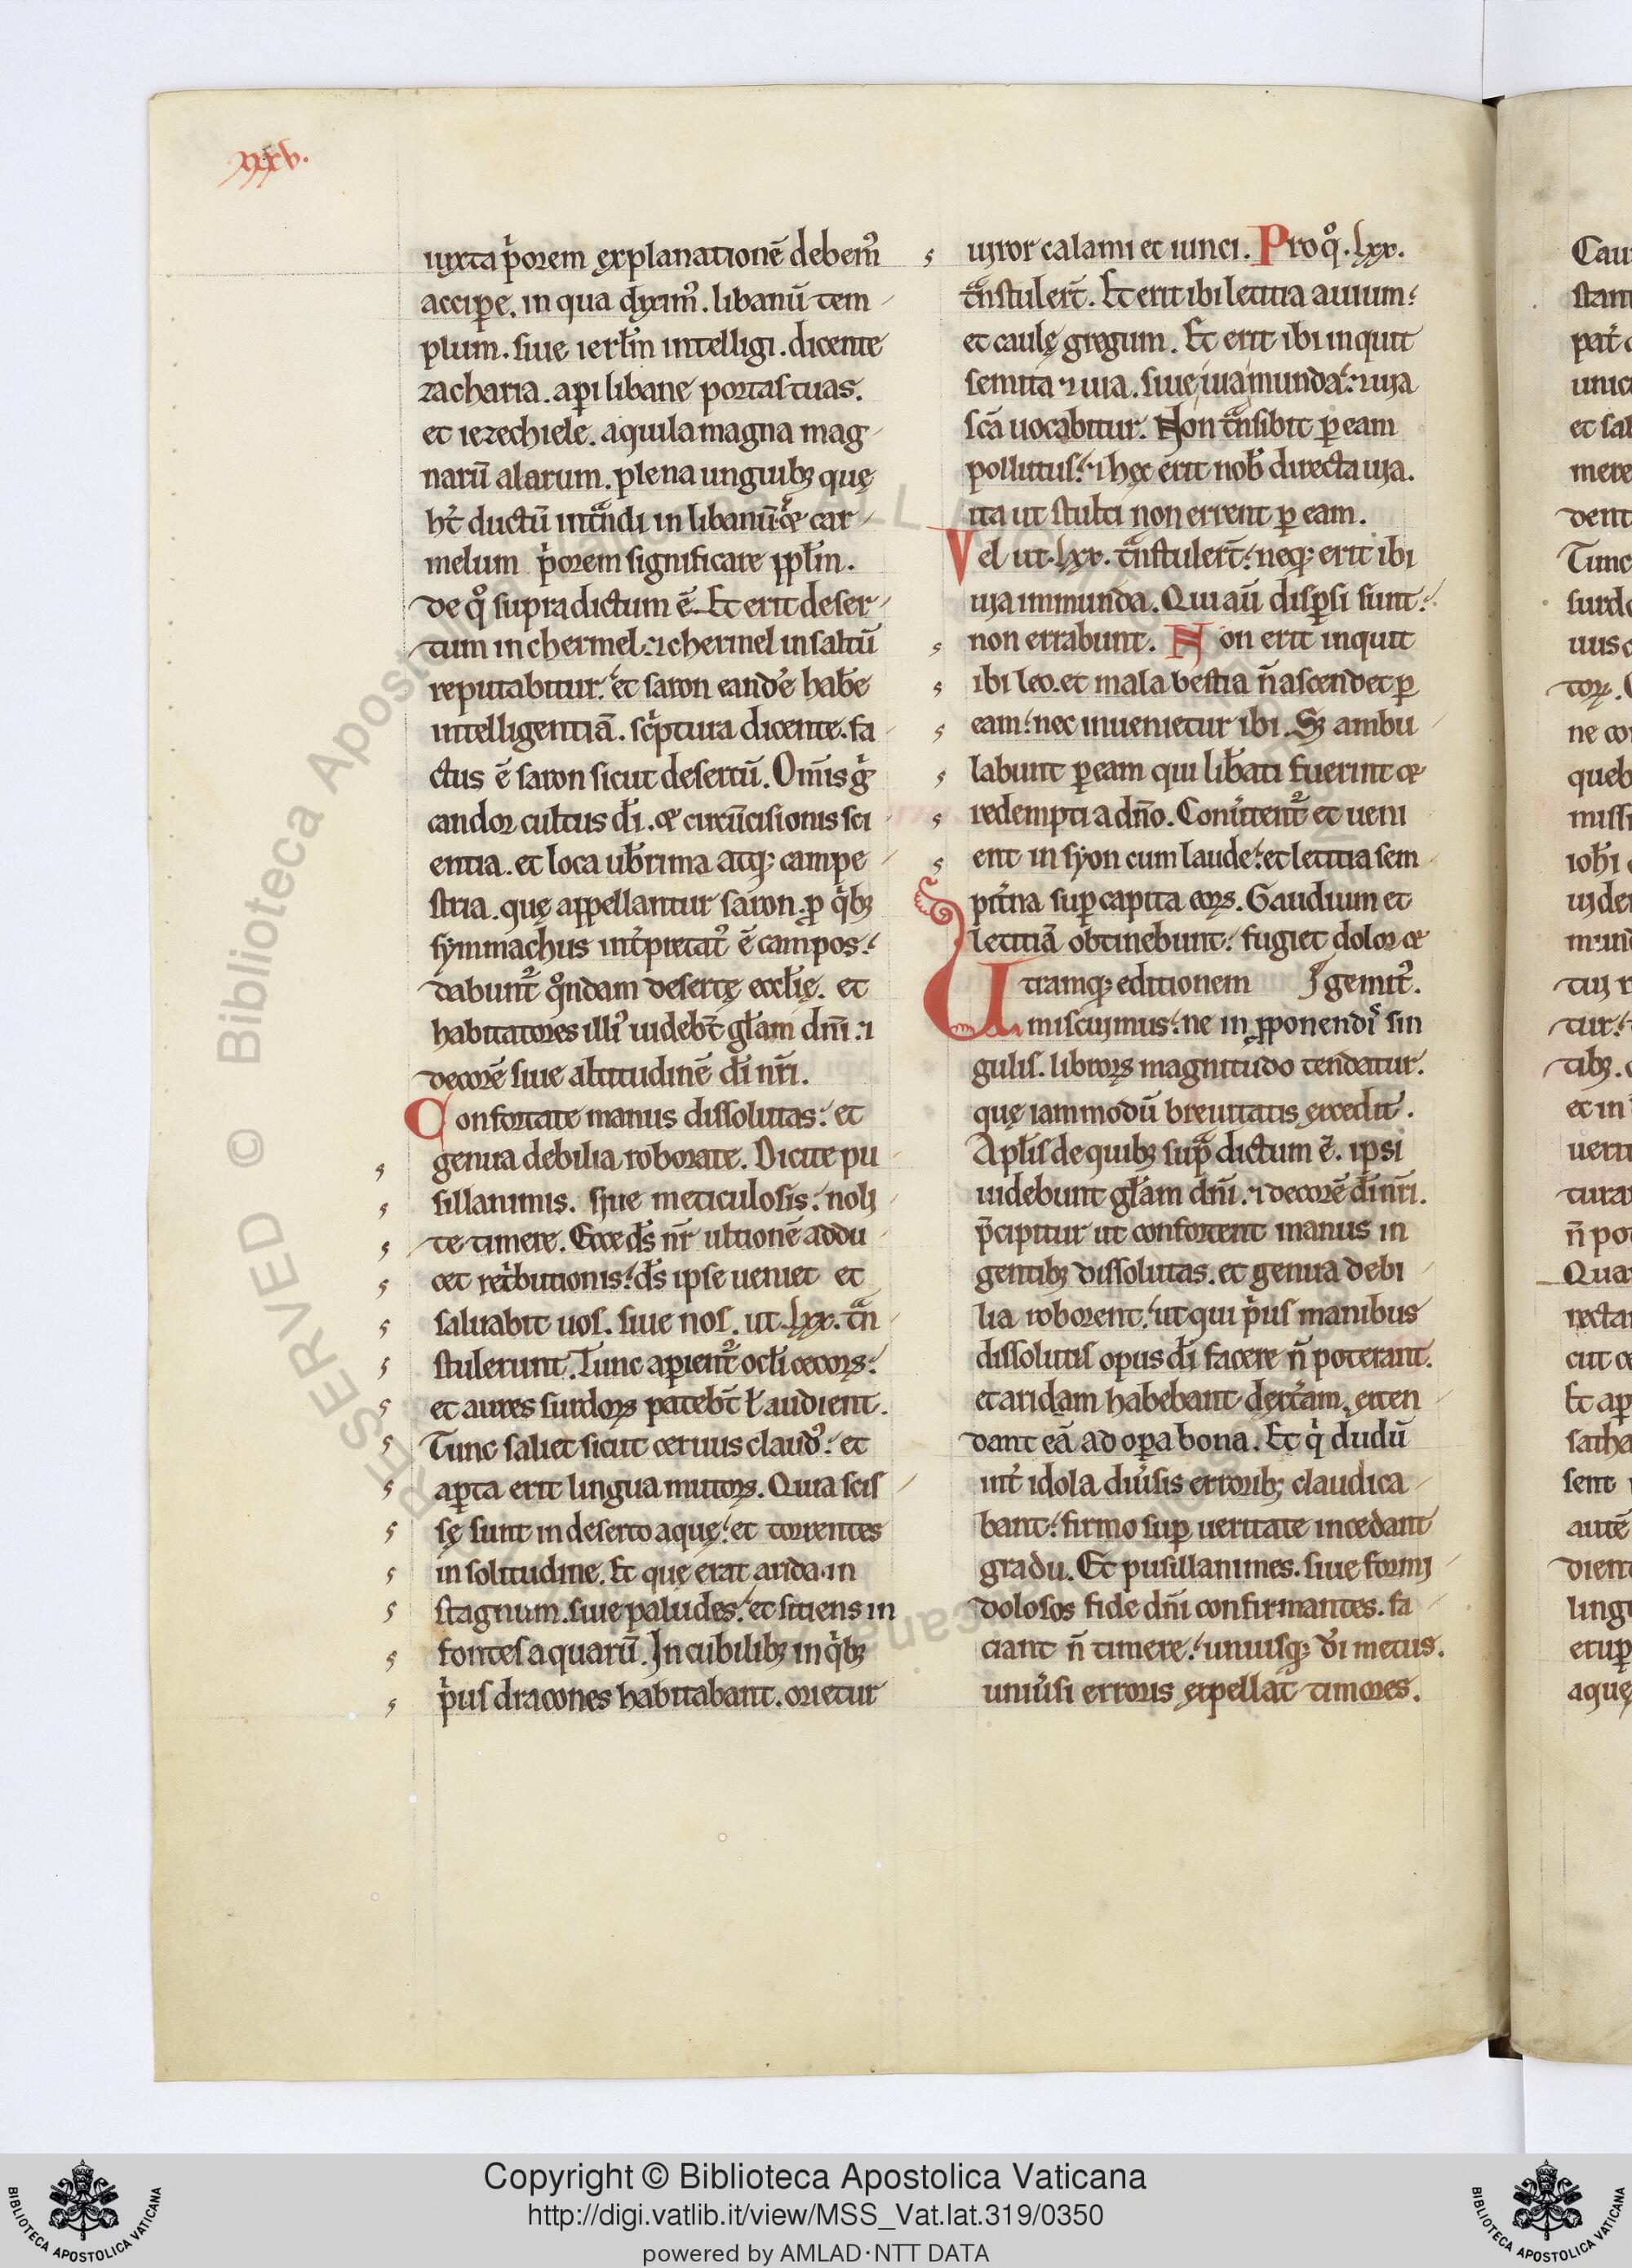 xxxv.
iuxta p̍orem explanationē debem᷒
accip̱e. in qua dixim᷒. libanū tem
plum. siue ierl̅m intelligi. dicente
zacharia. ap̱i libane portas tuas.
et iezechiele. aquila magna mag
narū alarum. plena unguibꝫ quę
ht̅ ductū intͣndi in libanū. cͤ car
melum p̍orem significare ꝓpl̅m.
de qͦ supra dictum ē. Et erit deser
tum in chermel. ⁊ chermel in saltū
reputabitur. et saron eand̓e hab̅e
intelligentiā. scͥptura dicente. fa
ctus ē saron sicut desertū. Om̅is gͥ
candor cultus d̅i. & circūcisionis sci
entia. et loca ub̅rima atqꝫ campe
stria. quę appellantur saron. ꝓ qͥbꝫ
symmachus int̓pretat᷒ ē campos.
dabunt᷒ qͦndam desertę eccl̅ię. et
habitatores illi᷒ uidebt̅ gl̅am dn̅i. ⁊
decorē siue altitudinē d̅i nr̅i.
Confortate manus dissolutas. et
genua debilia roborate. Dicite pu
sillanimis. siue meticulosis. noli
te timere. Ecce d̅s nr̅ ultionē addu
cet ret̍butionis. d̅s ipse ueniet et
saluabit uos. siue nos. ut .lxx. tͣn
stulerunt. Tunc ap̱ient᷒ ocl̅i cecoꝝ.
et aures surdoꝝ patebt̅ ł audient.
Tunc saliet sicut ceruus claud᷒. et
ap̱ta erit lingua mutoꝝ. Quia scis
sę sunt in deserto aquę. et torrentes
in solitudine. Et que erat arida. in
stagnum. siue paludes. et sitiens in
fontes aquarū. In cubilibꝫ in qͥbꝫ
p̍us dracones habitabant. orietur
uiror calami et iunci. Pro qͦ .lxx.
tͣnstulert̅. Et erit ibi letitia auium.
et caulę gregum. Et erit ibi inquit
semita ⁊ uia. siue uia munda. ⁊ uia
sc̅a uocabitur. Non tͣnsibit ꝑ eam
pollutus. ⁊ hęc erit nob̅ directa uia.
ita ut stulti non errent ꝑ eam.
Vel ut .lxx. tͣnstulert̅. neqꝫ erit ibi
uia immunda. Qui aū disꝑsi sunt.
non errabunt. Non erit inquit
ibi leo. et mala bestia n̅ ascendet ꝑ
eam. nec inuenietur ibi. Sꝫ ambu
labunt ꝑ eam qui lib̅ati fuerint &
redempti a dn̅o. Conu̓tent᷒ et ueni
ent in syon cum laude. et letitia sem
pit̓na suꝑ capita eoꝝ. Gaudium et
letitiā obtinebunt. fugiet dolor &
Utramqꝫ editionem gemit᷒.
miscuimus. ne in ꝓponendis sin
gulis. libroꝝ magnitudo tendatur.
quę iam modū breuitatis excedit.
Apl̅is de quibꝫ supͣ dictum ē. ipsi
uidebunt gl̅am dn̅i. ⁊ decorē d̅i nr̅i.
p̄cipitur ut confortent manus in
gentibꝫ dissolutas. et genua debi
lia roborent. ut qui p̍us manibus
dissolutis opus d̅i facere n̅ poterant.
et aridam habebant dext̓am. exten
dant eā ad oꝑa bona. Et qͥ dudū
int̓ idola diu̓sis erroribꝫ claudica
bant. firmo suꝑ ueritate incedant
gradu. Et pusillanimes. siue formi
dolosos fide dn̅i confirmantes. fa
ciant n̅ timere. unusqꝫ d̅i metus.
uniu̓si erroris expellat timores.
Copyright © Biblioteca Apostolica Vaticana
http://digi.vatlib.it/view/MSS_Vat.lat.319/0350
powered by AMLAD·NTT DATA
BIBLIOTECA APOSTOLICA VATICANA
BIBLIOTECA APOSTOLICA VATICANA